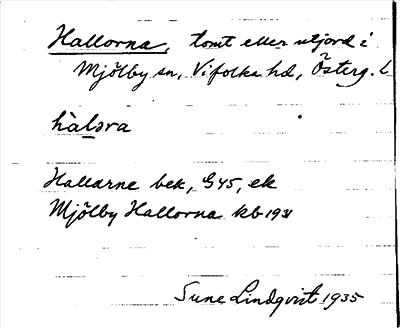 Hallorna, tomt eller utjord i
Mjölby sn, Vifolka hd, Österg. l.
hàlǝra
Hallarne bek, G45, ek
Mjölby Hallorna kb 1931
Sune Lindqvist 1935